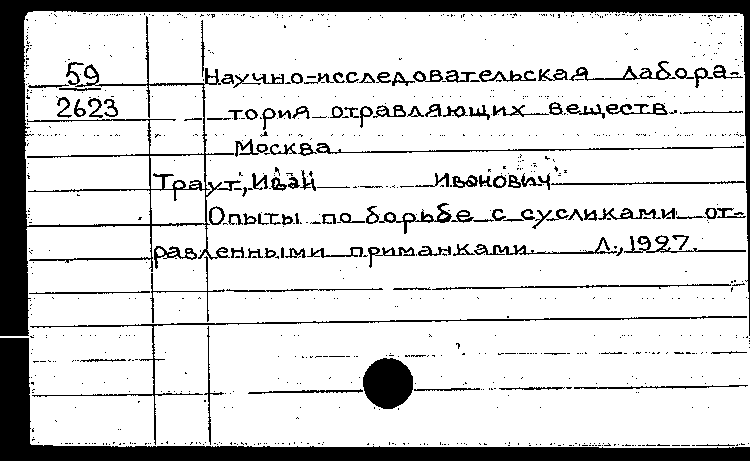 59
Научно-исследовательская лабора-
2623
тория отравляющих веществ.
Москва.
Траут, Иван Иванович
Опыты по борьбе с сусликами от-
равленными приманками. Л., 1927.